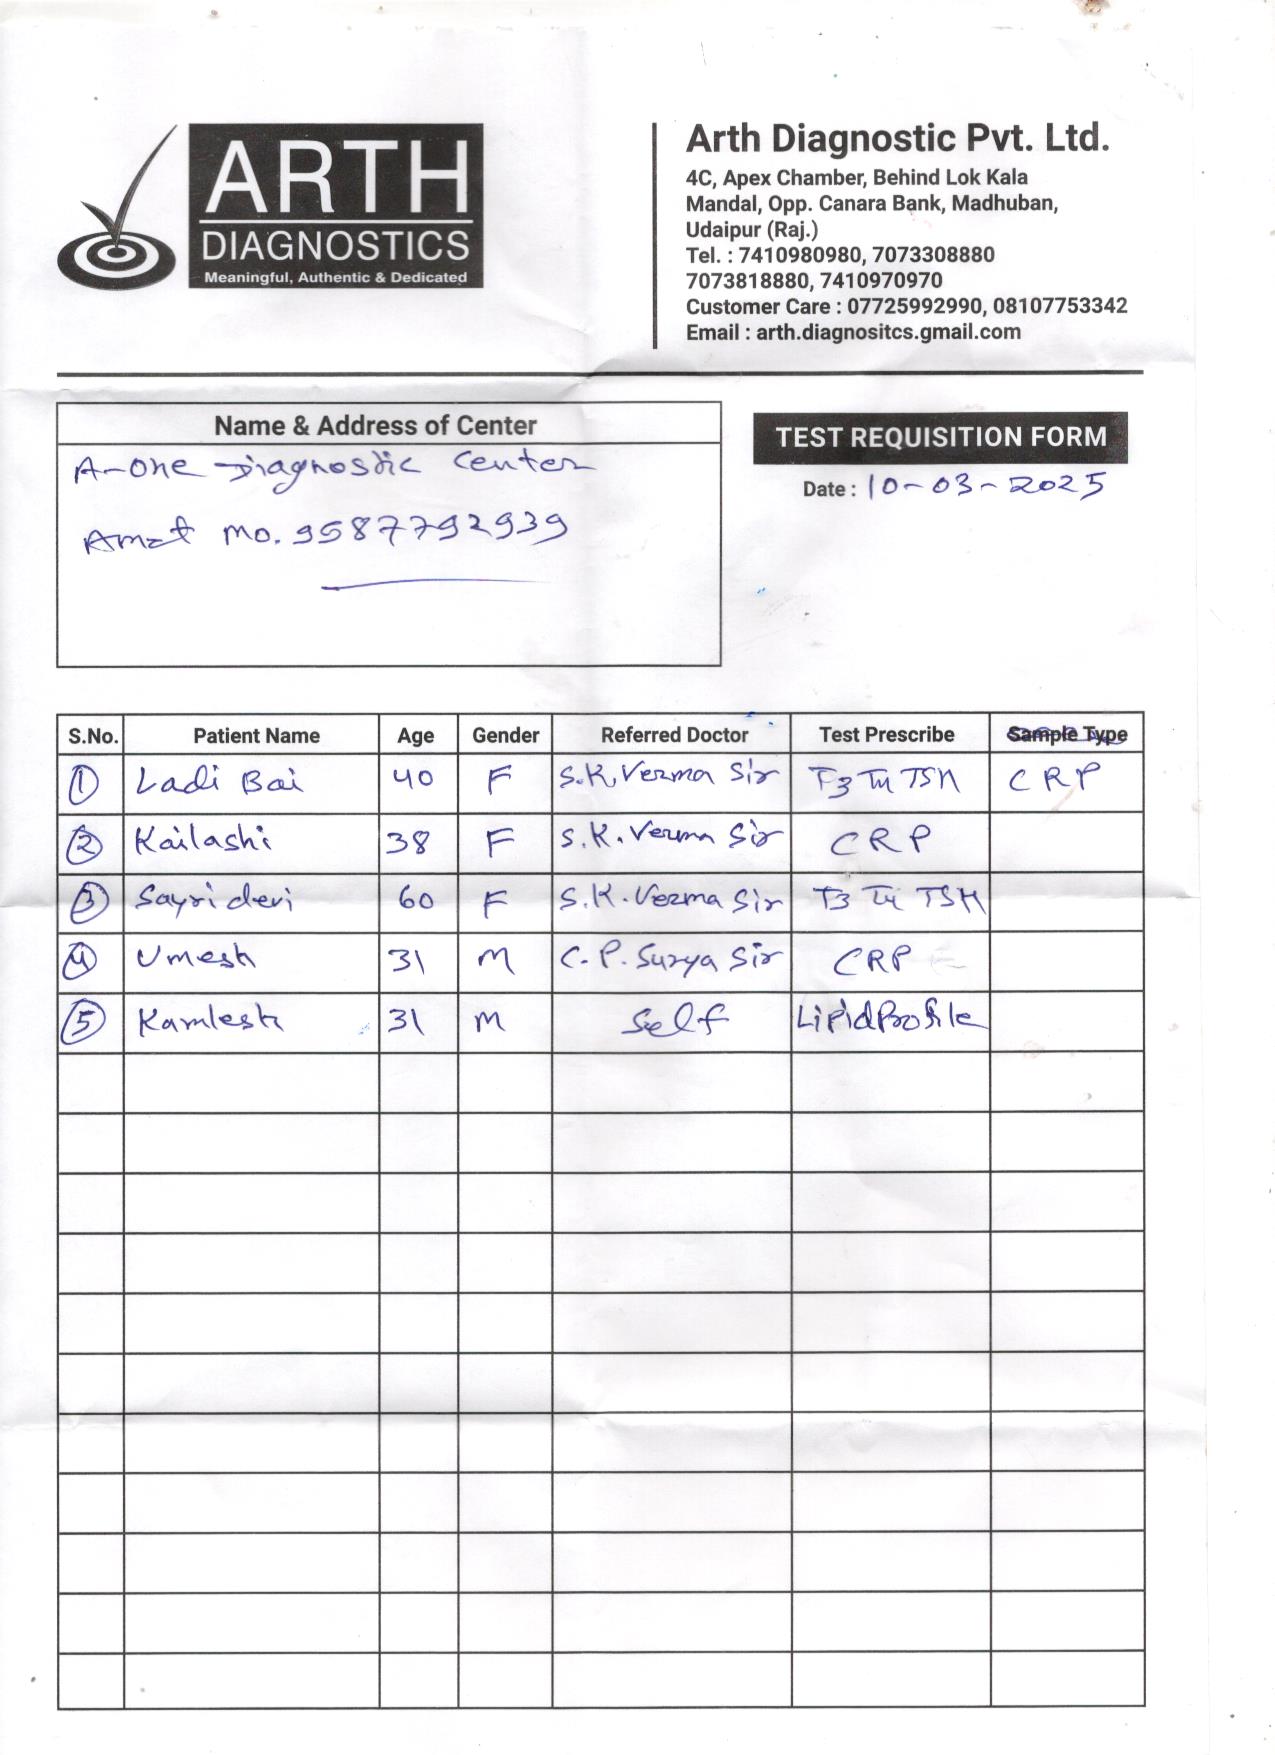 ARTH
DIAGNOSTICS
Meaningful, Authentic & Dedicated
Arth Diagnostic Pvt. Ltd.
4C, Apex Chamber, Behind Lok Kala
Mandal, Opp. Canara Bank, Madhuban,
Udaipur (Raj.)
Tel. : 7410980980, 7073308880
7073818880, 7410970970
Customer Care : 07725992990, 08107753342
Email : arth.diagnositcs.gmail.com
Name & Address of Center
A-One Diagnostic Center
Amet Mo. 9587792939
TEST REQUISITION FORM
Date : 10-03-2025
S.No. Patient Name Age Gender Referred Doctor Test Prescribe Sample Type
1 Ladi Bai 40 F S.K. Verma Sir T3 T4 TSH CRP
2 Kailashi 38 F S.K. Verma Sir CRP
3 Sayri devi 60 F S.K. Verma Sir T3 T4 TSH
4 Umesh 31 M C.P. Surya Sir CRP
5 Kamlesh 31 M Self Lipid Profile